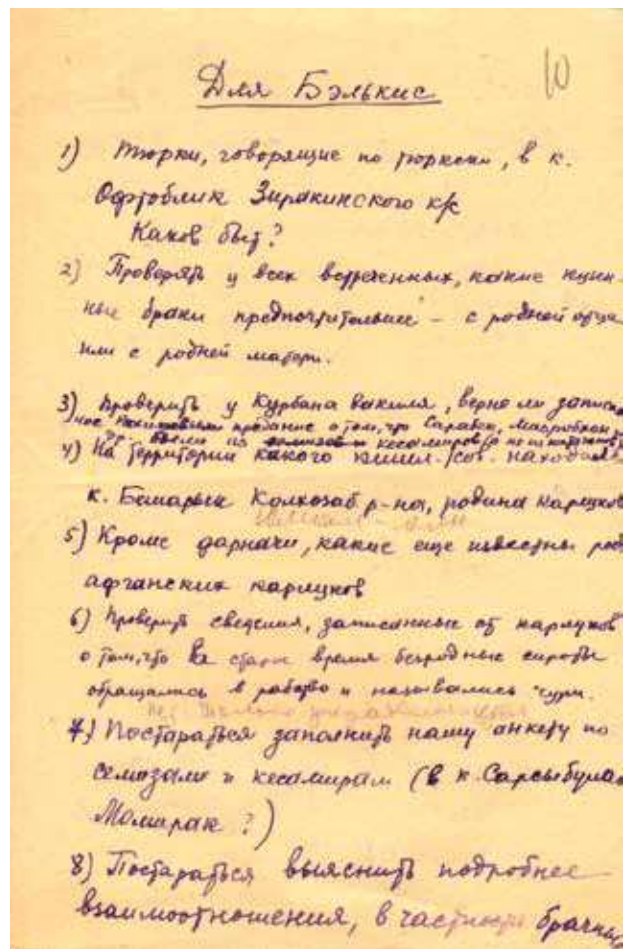 Для Бэлькис
10
1) Тюрки, говорящие по тюркски, в к.
Офтоблик Зиракинского к/с
Каков быт?
2) Проверять у всех встреченных, какие кузен-
ные браки предпочтительнее – с родней отца
или с родней матери.
3) Проверить у Курбана вакиля, верно ли записан
ное предание о том, что Сарават,
были из кесамиров (а не из
4) На территории какого кишл. сов. находился
к. Бешарык Колхозаб. р-на, родина карлуков
5) Кроме дарначи, какие еще известны род
афганских карлуков
6) Проверить сведения, записанные от карлуков
о том, что в старое время безродные сироты
обращались в рабство и назывались чури.
7) Постараться заполнить нашу анкету по
семизам и кесамирам (в к. Сарсыбулак
Момирак ?)
8) Постараться выяснить подробнее
взаимоотношения, в частности брачные